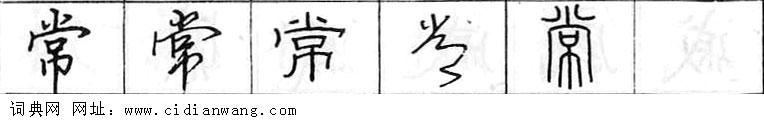 常 常 常 常 常
词典网 网址：www.cidianwang.com